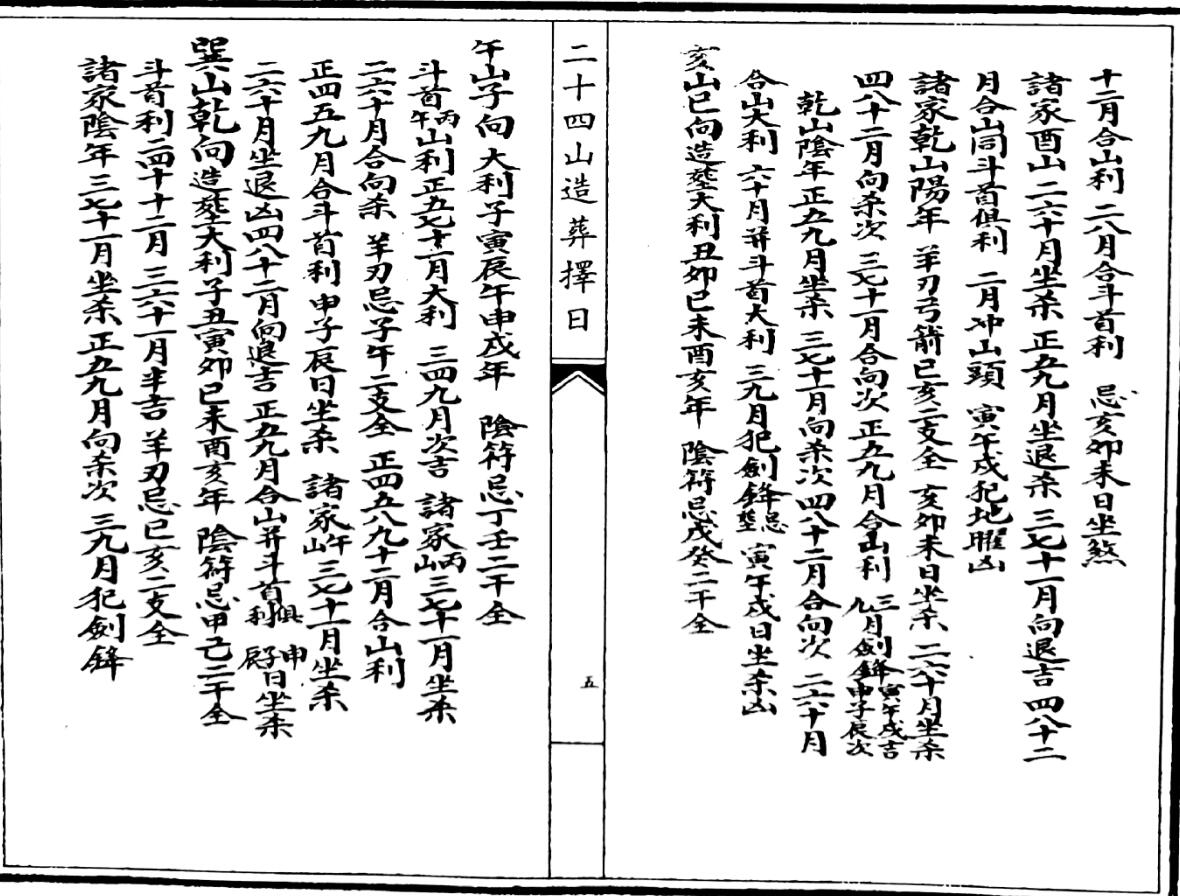 十二月合山利 二八月合斗首利 忌亥卯未日坐煞
諸家酉山二六十月坐杀 正五九月坐退杀 三七十一月向退吉 四八十二
月合山同斗首俱利 二月冲山頭 寅午戌犯地曜凶
諸家乾山陽年 羊刃弓箭巳亥二支全 亥卯未日坐杀 二六十月坐杀
四八十二月向杀次 三七十一月合向次 正五九月合山利 三九月劍鋒申子辰次寅午戌吉
乾山陰年正五九月坐杀 三七十一月向杀次 四八十二月合向次 二六十月
合山大利 六十月並斗首大利 三九月犯劍鋒忌塟 寅午戌日坐杀凶
亥山巳向造塟大利丑卯巳未酉亥年 陰符忌戊癸二干全
二十四山造葬擇日
五
午山子向 大利子寅辰午申戌年 陰符忌丁壬二干全
斗首丙午山利正五七十一月大利 三四九月次吉 諸家丙山三七十一月坐杀
二六十月合向杀 羊刃忌子午二支全 正四五八九十二月合山利
正四五九月合斗首利 申子辰日坐杀 諸家午山三七十一月坐杀
二六十月坐退凶四八十二月向退吉 正五九月合山並斗首俱利 申子辰日坐杀
巽山乾向造塟大利子丑寅卯巳未酉亥年 陰符忌甲己二干全
斗首利二四十十二月 三六十一月半吉 羊刃忌巳亥二支全
諸家陰年 三七十一月坐杀 正五九月向杀次 三九月犯劍鋒